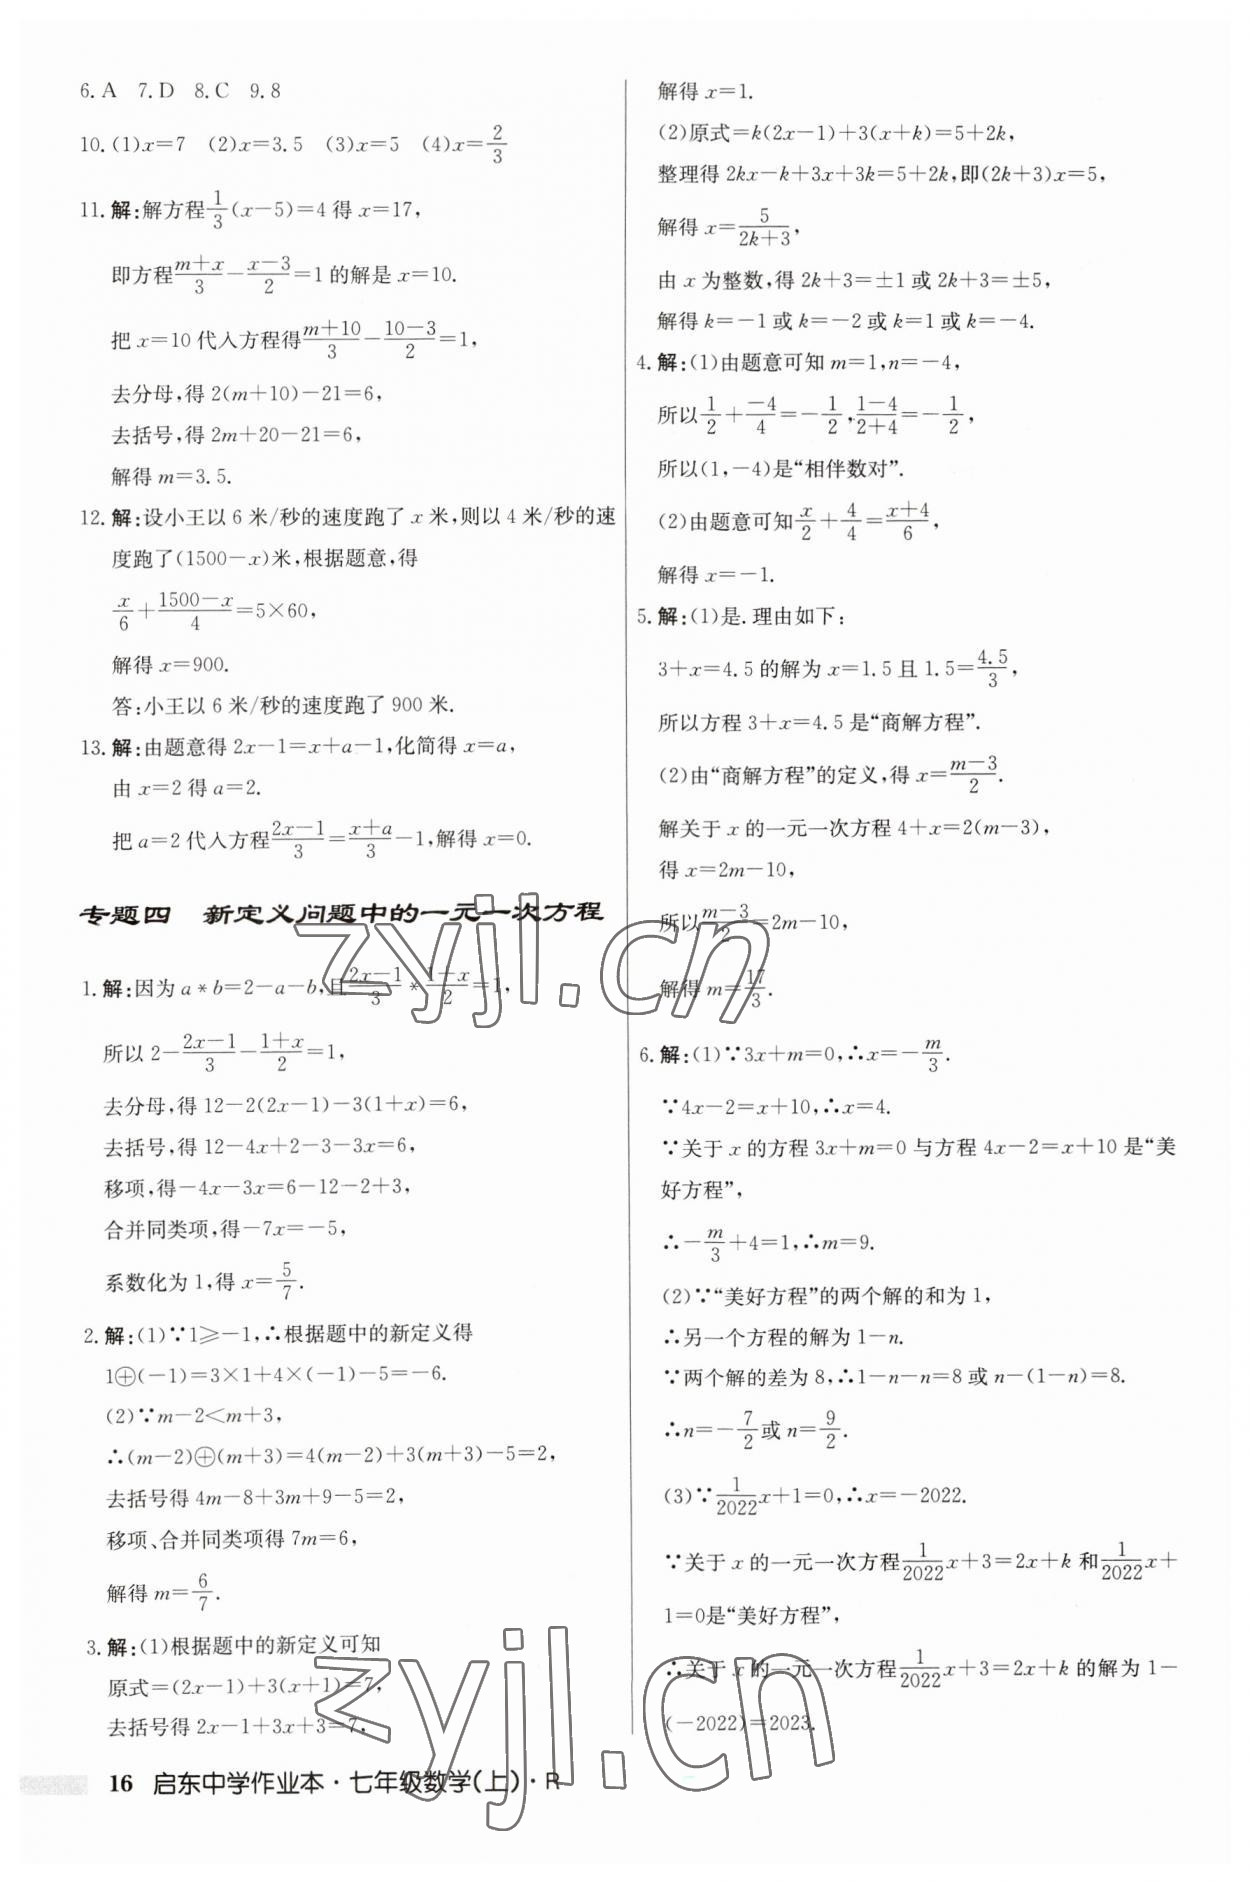 6.A 7.D 8.C 9.8
10.(1)x=7 (2)x=3.5 (3)x=5 (4)x=2/3
11.解:解方程1/3(x-5)=4得x=17,
即方程(m+x)/3-(x-3)/2=1的解是x=10.
把x=10代入方程得(m+10)/3-(10-3)/2=1,
去分母,得2(m+10)-21=6,
去括号,得2m+20-21=6,
解得m=3.5.
12.解:设小王以6米/秒的速度跑了x米,则以4米/秒的速
度跑了(1500-x)米,根据题意,得
x/6+(1500-x)/4=5×60,
解得x=900.
答:小王以6米/秒的速度跑了900米.
13.解:由题意得2x-1=x+a-1,化简得x=a,
由x=2得a=2.
把a=2代入方程(2x-1)/3=(x+a)/3-1,解得x=0.
专题四 新定义问题中的一元一次方程
1.解:因为a*b=2-a-b,且(2x-1)/3*(1+x)/2=1,
所以2-(2x-1)/3-(1+x)/2=1,
去分母,得12-2(2x-1)-3(1+x)=6,
去括号,得12-4x+2-3-3x=6,
移项,得-4x-3x=6-12-2+3,
合并同类项,得-7x=-5,
系数化为1,得x=5/7.
2.解:(1)∵1⩾-1,∴根据题中的新定义得
1⊕(-1)=3×1+4×(-1)-5=-6.
(2)∵m-2<m+3,
∴(m-2)⊕(m+3)=4(m-2)+3(m+3)-5=2,
去括号得4m-8+3m+9-5=2,
移项、合并同类项得7m=6,
解得m=6/7.
3.解:(1)根据题中的新定义可知
原式=(2x-1)+3(x+1)=7,
去括号得2x-1+3x+3=7,
解得x=1.
(2)原式=k(2x-1)+3(x+k)=5+2k,
整理得2kx-k+3x+3k=5+2k,即(2k+3)x=5,
解得x=5/(2k+3),
由x为整数,得2k+3=±1或2k+3=±5,
解得k=-1或k=-2或k=1或k=-4.
4.解:(1)由题意可知m=1,n=-4,
所以1/2+(-4)/4=-1/2,(1-4)/(2+4)=-1/2,
所以(1,-4)是“相伴数对”.
(2)由题意可知x/2+4/4=(x+4)/6,
解得x=-1.
5.解:(1)是.理由如下:
3+x=4.5的解为x=1.5且1.5=4.5/3,
所以方程3+x=4.5是“商解方程”.
(2)由“商解方程”的定义,得x=(m-3)/2.
解关于x的一元一次方程4+x=2(m-3),
得x=2m-10,
所以(m-3)/2=2m-10,
解得m=17/3.
6.解:(1)∵3x+m=0,∴x=-m/3.
∵4x-2=x+10,∴x=4.
∵关于x的方程3x+m=0与方程4x-2=x+10是“美
好方程”,
∴-m/3+4=1,∴m=9.
(2)∵“美好方程”的两个解的和为1,
∴另一个方程的解为1-n.
∵两个解的差为8,∴1-n-n=8或n-(1-n)=8.
∴n=-7/2或n=9/2.
(3)∵1/2022x+1=0,∴x=-2022.
∵关于x的一元一次方程1/2022x+3=2x+k和1/2022x+
1=0是“美好方程”,
∴关于x的一元一次方程1/2022x+3=2x+k的解为1-
(-2022)=2023.
16 启东中学作业本·七年级数学(上)·R
zyjl.cn
zyjl.cn